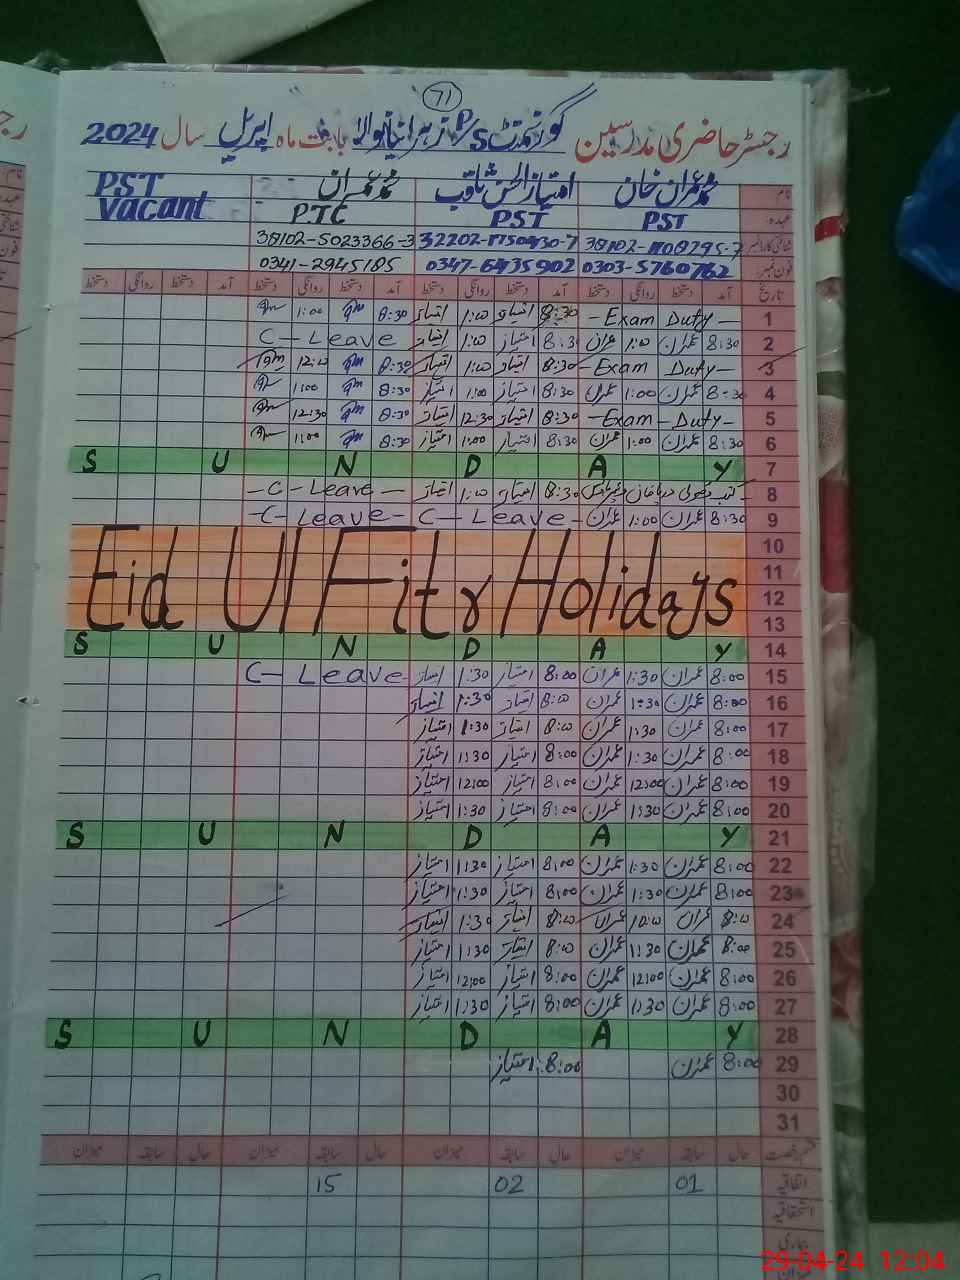 71
رجسٹر حاضری مدرسین گورنمنٹ P/S بابت ماہ اپریل سال 2024
نام محمد عمران خان امتیاز الحسن ثاقب محمد عمران PST
عہدہ: PST PST P.T.C Vacant
شناختی کارڈ نمبر 38102-5023366-3
فون نمبر: 0303-5760762 0347-6435902 0341-2945185
تاریخ آمد دستخط روانگی دستخط آمد دستخط روانگی دستخط آمد دستخط روانگی دستخط آمد دستخط روانگی دستخط
1 - Exam Duty - 8:30 امتیاز 1:00 امتیاز 8:30 1:00
2 8:30 عمران 1:00 عمران 8:30 امتیاز 1:00 امتیاز C - Leave
3 - Exam Duty - 8:30 امتیاز 1:00 امتیاز 8:30 12:00
4 8:30 عمران 1:00 عمران 8:30 امتیاز 1:00 امتیاز 8:30 1:00
5 - Exam - Duty - 8:30 امتیاز 12:30 امتیاز 8:30 12:30
6 8:30 عمران 1:00 عمران 8:30 امتیاز 1:00 امتیاز 8:30 1:00
7 S U N D A Y
8 8:30 امتیاز 1:00 امتیاز - C - Leave -
9 8:30 عمران 1:00 عمران - C - Leave - - C - Leave -
10
11
Eid Ul Fitr Holidays
12
13
14 S U N D A Y
15 8:00 عمران 1:30 عمران 8:00 امتیاز 1:30 امتیاز C - Leave
16 8:00 عمران 1:30 عمران 8:00 امتیاز 1:30 امتیاز
17 8:00 عمران 1:30 عمران 8:00 امتیاز 1:30 امتیاز
18 8:00 عمران 1:30 عمران 8:00 امتیاز 1:30 امتیاز
19 8:00 عمران 12:00 عمران 8:00 امتیاز 12:00 امتیاز
20 8:00 عمران 1:30 عمران 8:00 امتیاز 1:30 امتیاز
21 S U N D A Y
22 8:00 عمران 1:30 عمران 8:00 امتیاز 1:30 امتیاز
23 8:00 عمران 1:30 عمران 8:00 امتیاز 1:30 امتیاز
24 8:00 عمران 10:00 عمران 8:00 امتیاز 1:30 امتیاز
25 8:00 عمران 1:30 عمران 8:00 امتیاز 1:30 امتیاز
26 8:00 عمران 12:00 عمران 8:00 امتیاز 12:00 امتیاز
27 8:00 عمران 1:30 عمران 8:00 امتیاز 1:30 امتیاز
28 S U N D A Y
29 8:00 عمران 8:00 امتیاز
30
31
قسم رخصت حال سابقہ میزان حال سابقہ میزان حال سابقہ میزان حال سابقہ میزان
اتفاقیہ 01 02 15
استحقاقیہ
بیماری
میزان
29-04-24 12:04